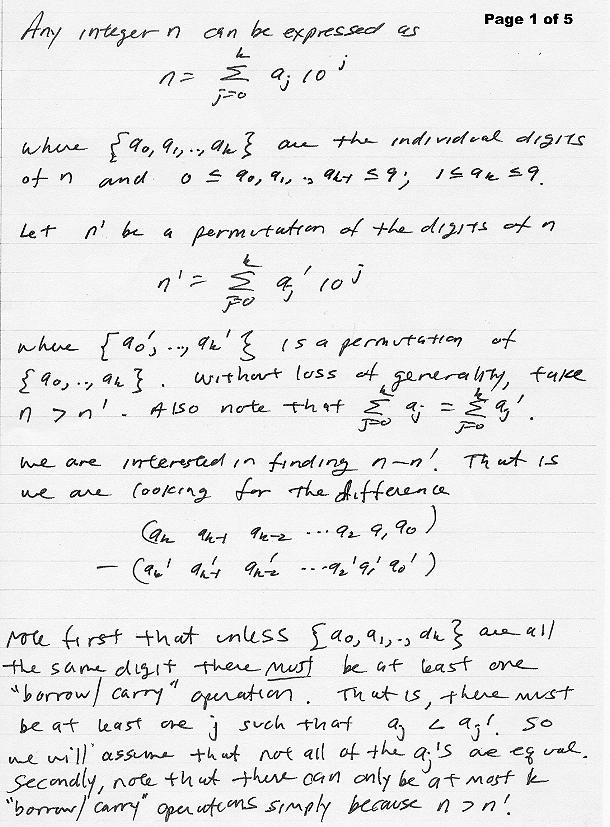 Page 1 of 5
Any integer n can be expressed as
n = \sum_{j=0}^{k} a_j 10^j
where {a_0, a_1, .., a_k} are the individual digits
of n and 0 ≤ a_0, a_1, .., a_{k-1} ≤ 9; 1 ≤ a_k ≤ 9.
Let n' be a permutation of the digits of n
n' = \sum_{j=0}^{k} a_j' 10^j
where {a_0', .., a_k'} is a permutation of
{a_0, .., a_k}. Without loss of generality, take
n > n'. Also note that \sum_{j=0}^{k} a_j = \sum_{j=0}^{k} a_j'.
We are interested in finding n-n'. That is
we are looking for the difference
(a_k a_{k-1} a_{k-2} ... a_2 a_1 a_0)
- (a_k' a_{k-1}' a_{k-2}' ... a_2' a_1' a_0')
Note first that unless {a_0, a_1, .., a_k} are all
the same digit there must be at least one
"borrow/carry" operation. That is, there must
be at least one j such that a_j < a_j'. So
we will assume that not all of the a_j's are equal.
Secondly, note that there can only be at most k
"borrow/carry" operations simply because n > n'.